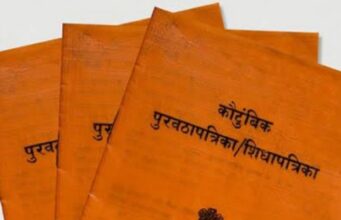 कौटुंबिक
पुरवठापत्रिका/शिधापत्रिका
पुरवठ
पुरव